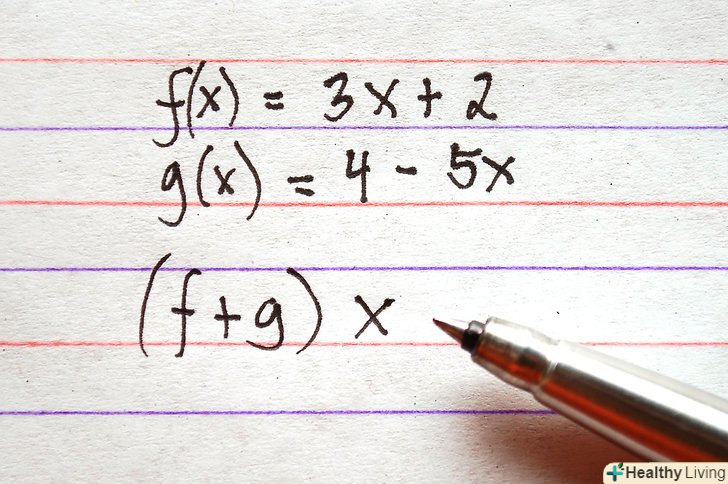 f(x) = 3x + 2
g(x) = 4 - 5x
(f + g) x
Healthy Living